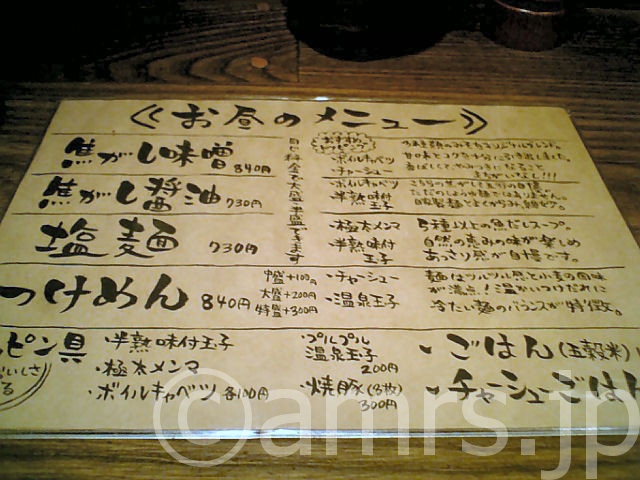 ≪お昼のメニュー≫
焦がし味噌 840円
焦がし醤油 730円
塩麺 730円
つけめん 840円
中盛+100円
大盛+200円
特盛+300円
同じ料金で大盛・半盛できます
おすすめトッピング
・ボイルキャベツ
・チャーシュー
・ボイルキャベツ
・半熟味付玉子
・極太メンマ
・半熟味付玉子
・チャーシュー
・温泉玉子
甘味とコクを十分に引き出しました。
こちらの焦がしも当店自慢
5種類以上の魚だしスープ。
自然の恵みの味が楽しめ
あっさり感が自慢です。
麺はツルツル感と小麦の風味
が満点!温かいつけだれに
冷たい麺のバランスが特徴。
ピン具
・半熟味付玉子
・極太メンマ
・ボイルキャベツ 各100円
・プルプル温泉玉子 200円
・焼豚(3枚) 300円
・ごはん(五穀米)
・チャーシューごはん
©amrs.jp